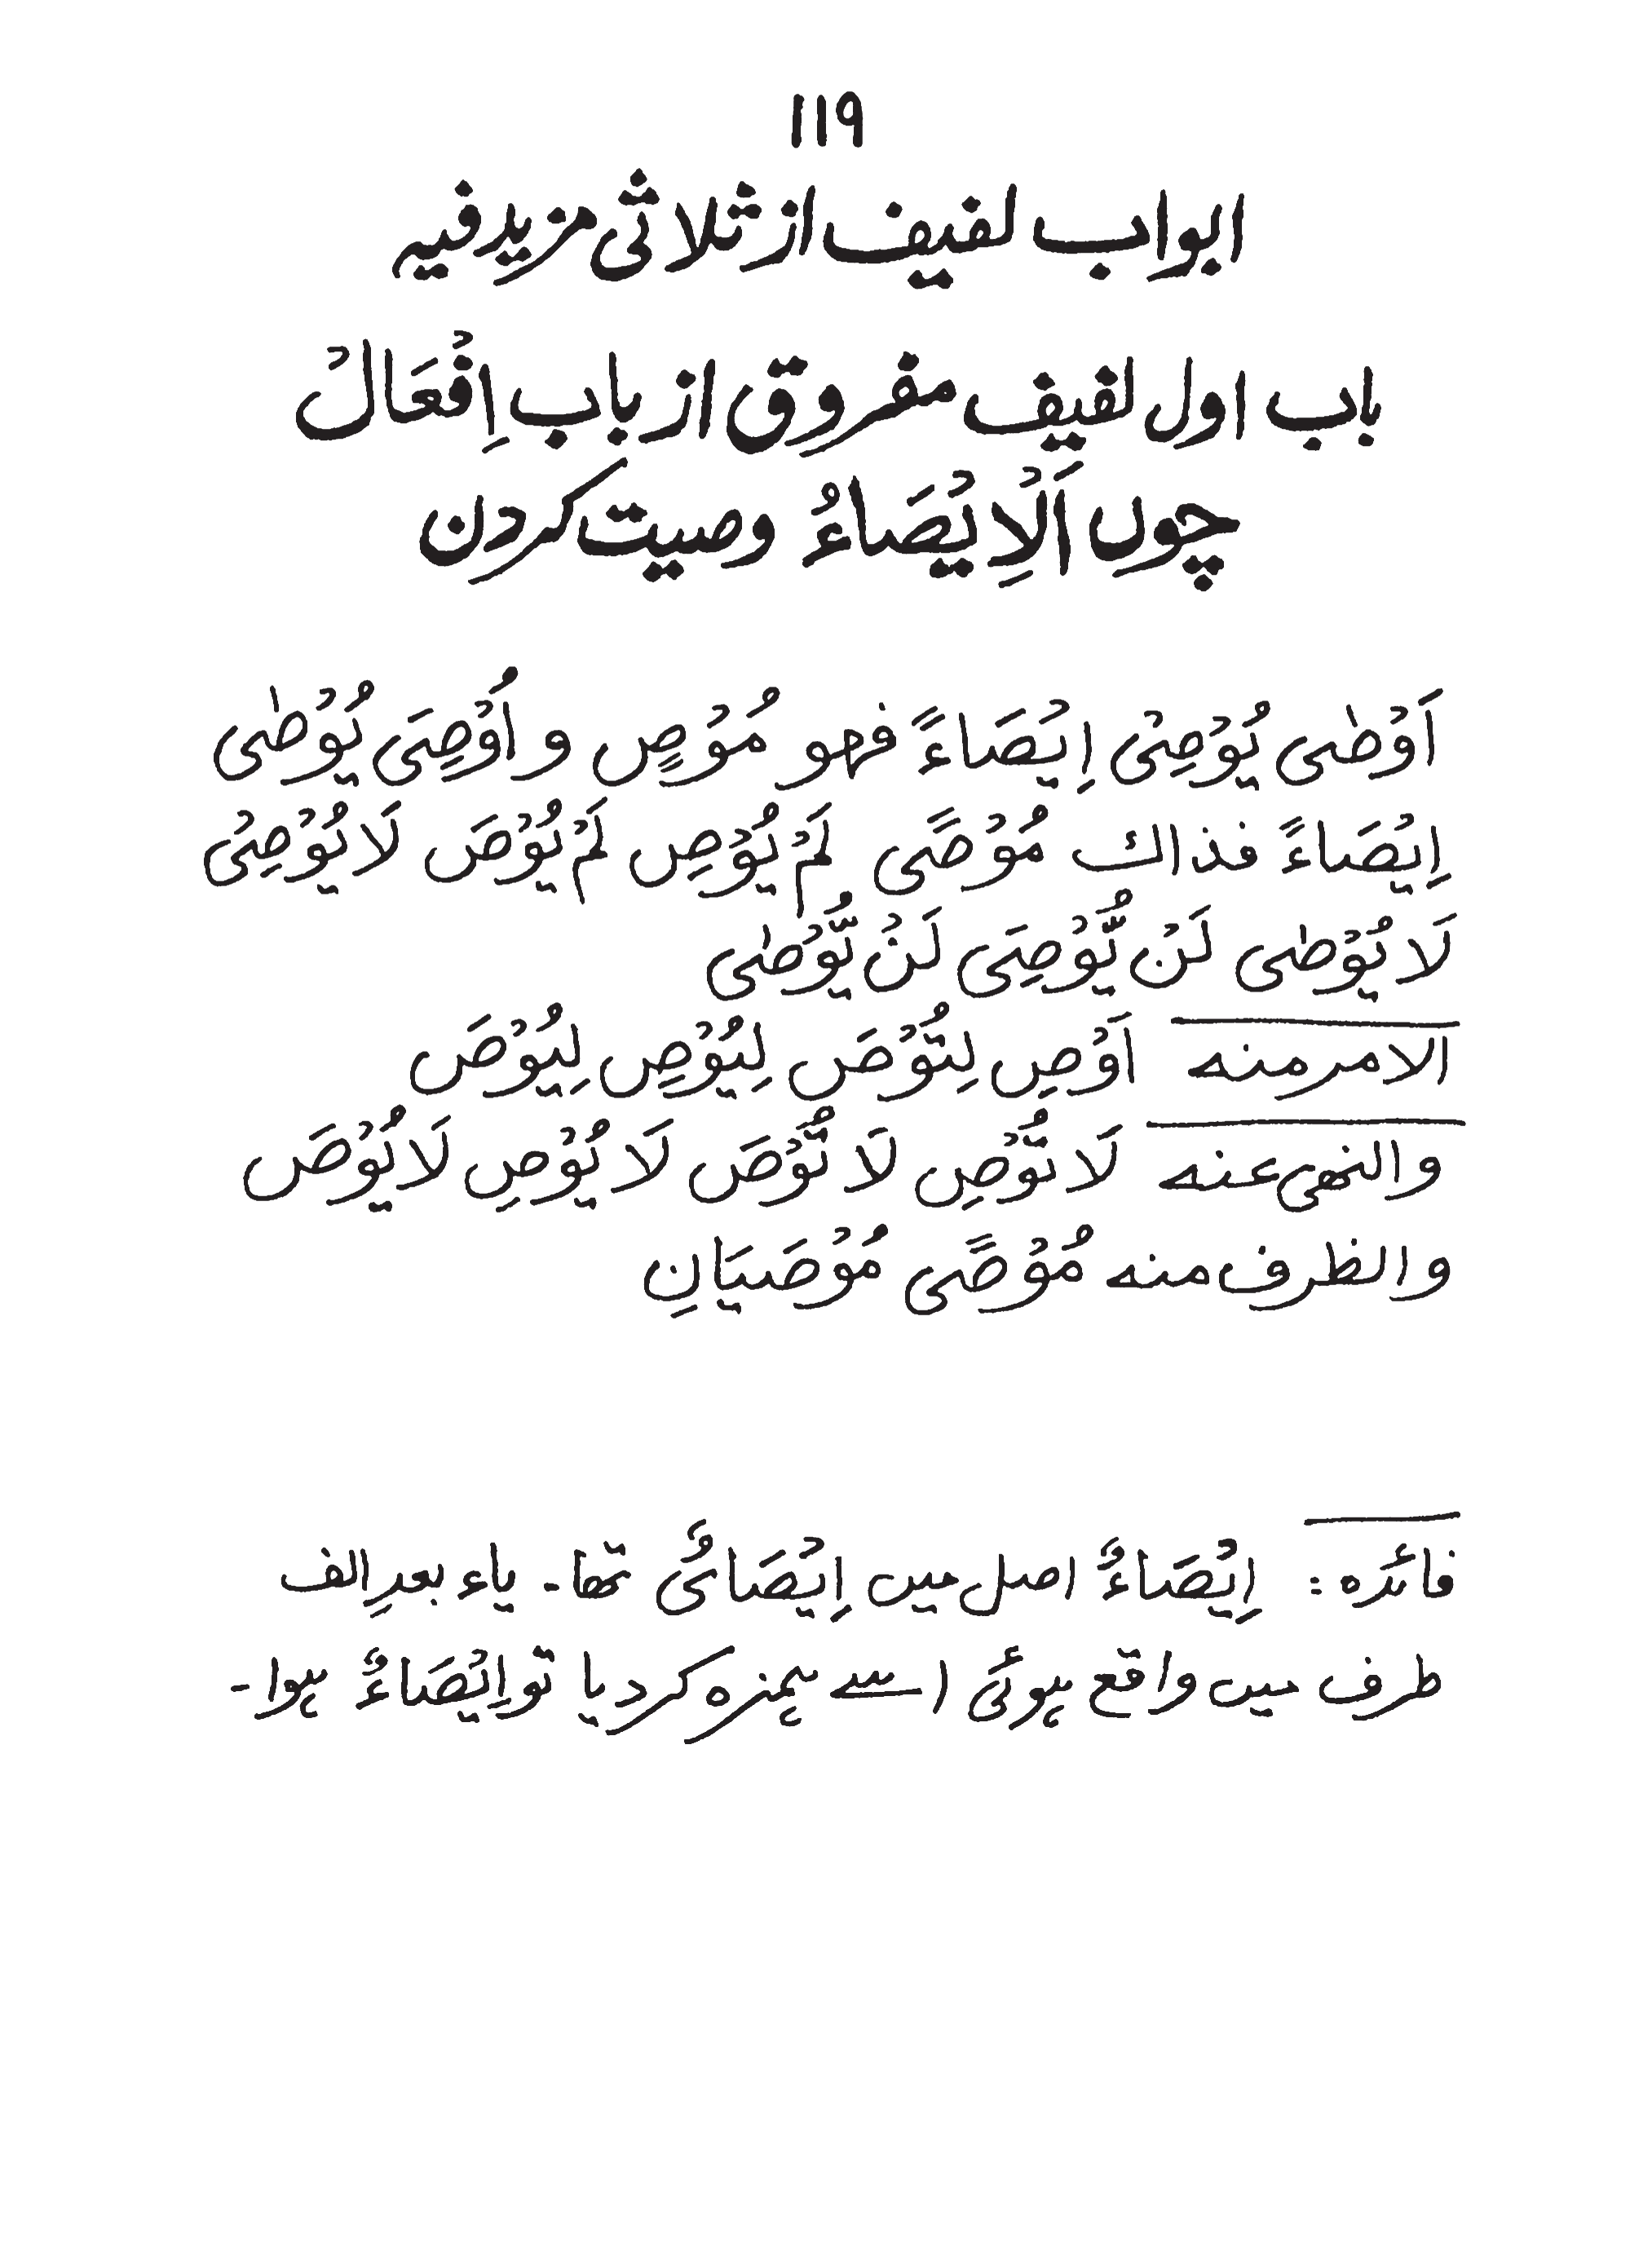 ۱۱۹
ابواب لفیف از ثلاثی مزید فیہ
باب اول لفیف مفروق از باب اِفْعَالْ
چوں اَلْاِیْصَاءُ وصیت کردن
اَوْصٰی یُوْصِیْ اِیْصَاءً فهو مُوْصٍ و اُوْصِیَ یُوْصٰی
اِیْصَاءً فذاك مُوْصًی لَمْ یُوْصِ لَمْ یُوْصَ لَا یُوْصِیْ
لَا یُوْصٰی لَنْ یُّوْصِیَ لَنْ یُّوْصٰی
الامر منه اَوْصِ لِتُوْصَ لِیُوْصِ لِیُوْصَ
والنهی عنه لَا تُوْصِ لَا تُوْصَ لَا یُوْصِ لَا یُوْصَ
والظرف منه مُوْصًی مُوْصَیَانِ
فائدہ : اِیْصَاءٌ اصل میں اِیْصَائٌ تھا۔ یاء بعدِ الف
طرف میں واقع ہوئی اسے ہمزہ کر دیا تو اِیْصَاءٌ ہوا۔